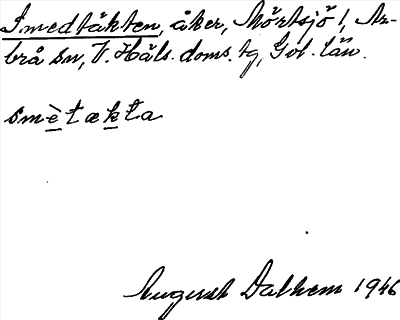 Smedtäkten, åker, Mörtsjö 1, Ar-
brå sn, V. Häls. doms. tg, Gvl. län.
smètækta
August Dalhem 1946